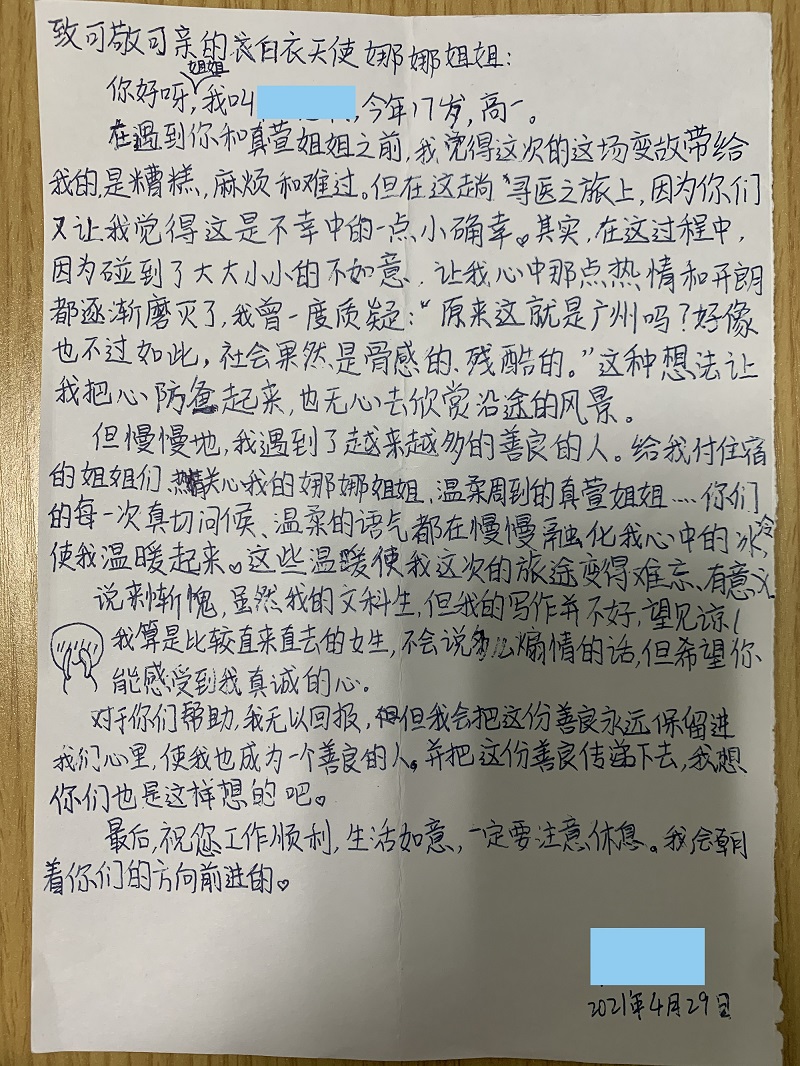 致可敬可亲的白衣天使娜娜姐姐：
你好呀，姐姐我叫，今年17岁，高一。
在遇到你和真萱姐姐之前，我觉得这次的这场变故带给
我的，是糟糕，麻烦和难过。但在这趟“寻医之旅上，因为你们
又让我觉得这是不幸中的一点小确幸。其实，在这过程中，
因为碰到了大大小小的不如意，让我心中那点热情和开朗
都逐渐磨灭了，我曾一度质疑：“原来这就是广州吗？好像
也不过如此，社会果然是骨感的、残酷的。”这种想法让
我把心防起来，也无心去欣赏沿途的风景。
但慢慢地，我遇到了越来越多的善良的人。给我付住宿
的姐姐们热情关心我的娜娜姐姐、温柔周到的真萱姐姐……你们
的每一次真切问候、温柔的语气都在慢慢融化我心中的冰冷，
使我温暖起来。这些温暖使我这次的旅途变得难忘、有意义
说来惭愧，虽然我的文科生，但我的写作并不好，望见谅！
我算是比较直来直去的女生，不会说煽情的话，但希望你
能感受到我真诚的心。
对于你们帮助，我无以回报，但我会把这份善良永远保留进
我们心里，使我也成为一个善良的人。并把这份善良传递下去，我想
你们也是这样想的吧。
最后，祝您工作顺利，生活如意，一定要注意休息。我会朝
着你们的方向前进的。
2021年4月29日